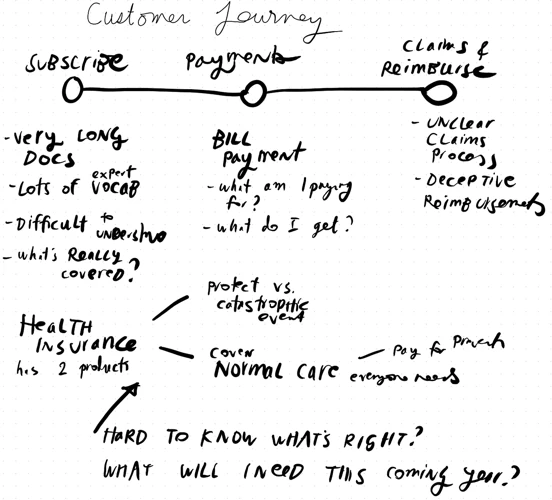 Customer Journey
SUBSCRIBE
Payments
CLAIMS &
REIMBURSE
- VERY LONG
DOCS
- LOTS OF expert
VOCAB
- DIFFICULT to
UNDERSTAND
- what's REALLY
covered?
BILL
payment
- what am I paying
for?
- what do I get?
- UNCLEAR
CLAIMS
PROCESS
- DECEPTIVE
REIMBURSEMENTS
HEALTH
INSURANCE
has 2 products
protect vs.
catastrophic
event
cover
NORMAL CARE
pay for
everyone needs
HARD TO KNOW WHAT'S RIGHT?
WHAT WILL I NEED THIS coming year?